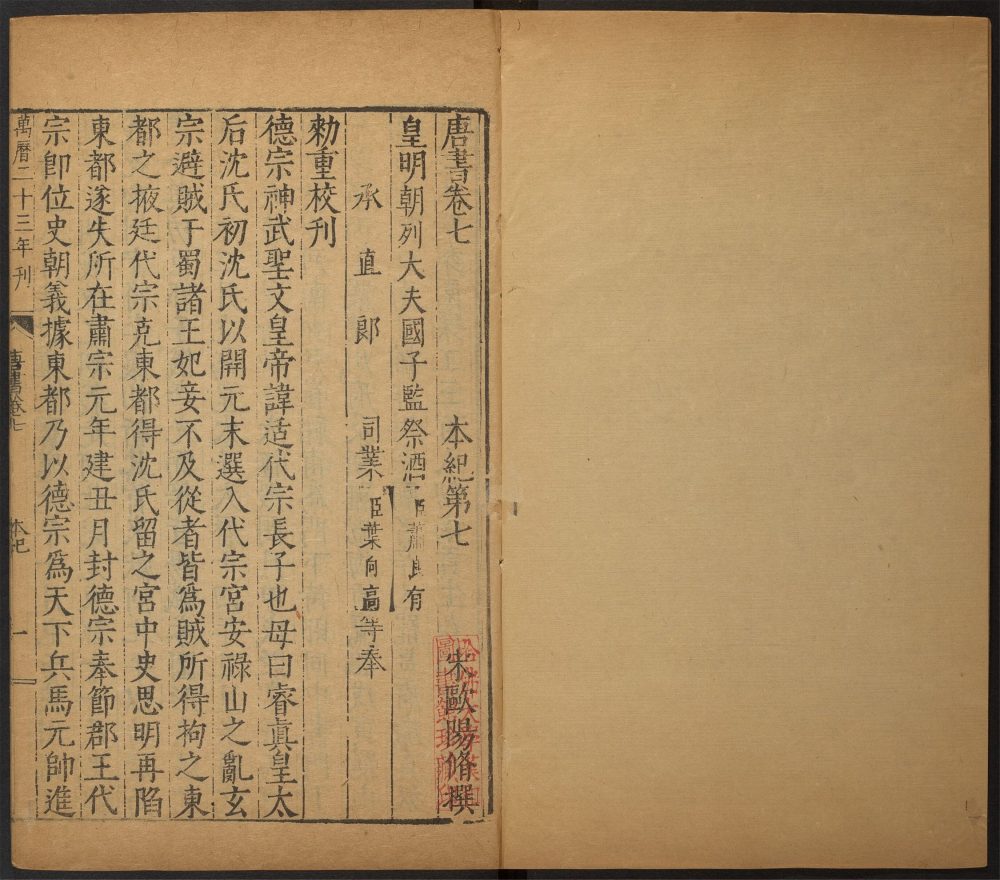 唐書卷七 本紀第七 宋歐陽脩撰
皇明朝列大夫國子監祭酒臣蕭良有
承直郎 司業臣葉向高等奉
勑重校刊
德宗神武聖文皇帝諱适代宗長子也母曰睿真皇太
后沈氏初沈氏以開元末選入代宗宮安祿山之亂玄
宗避賊于蜀諸王妃妾不及從者皆為賊所得拘之東
都之掖廷代宗克東都得沈氏留之宮中史思明再陷
東都遂失所在肅宗元年建丑月封德宗奉節郡王代
宗即位史朝義據東都乃以德宗為天下兵馬元帥進
萬曆二十三年刊 唐書卷七 本紀 一